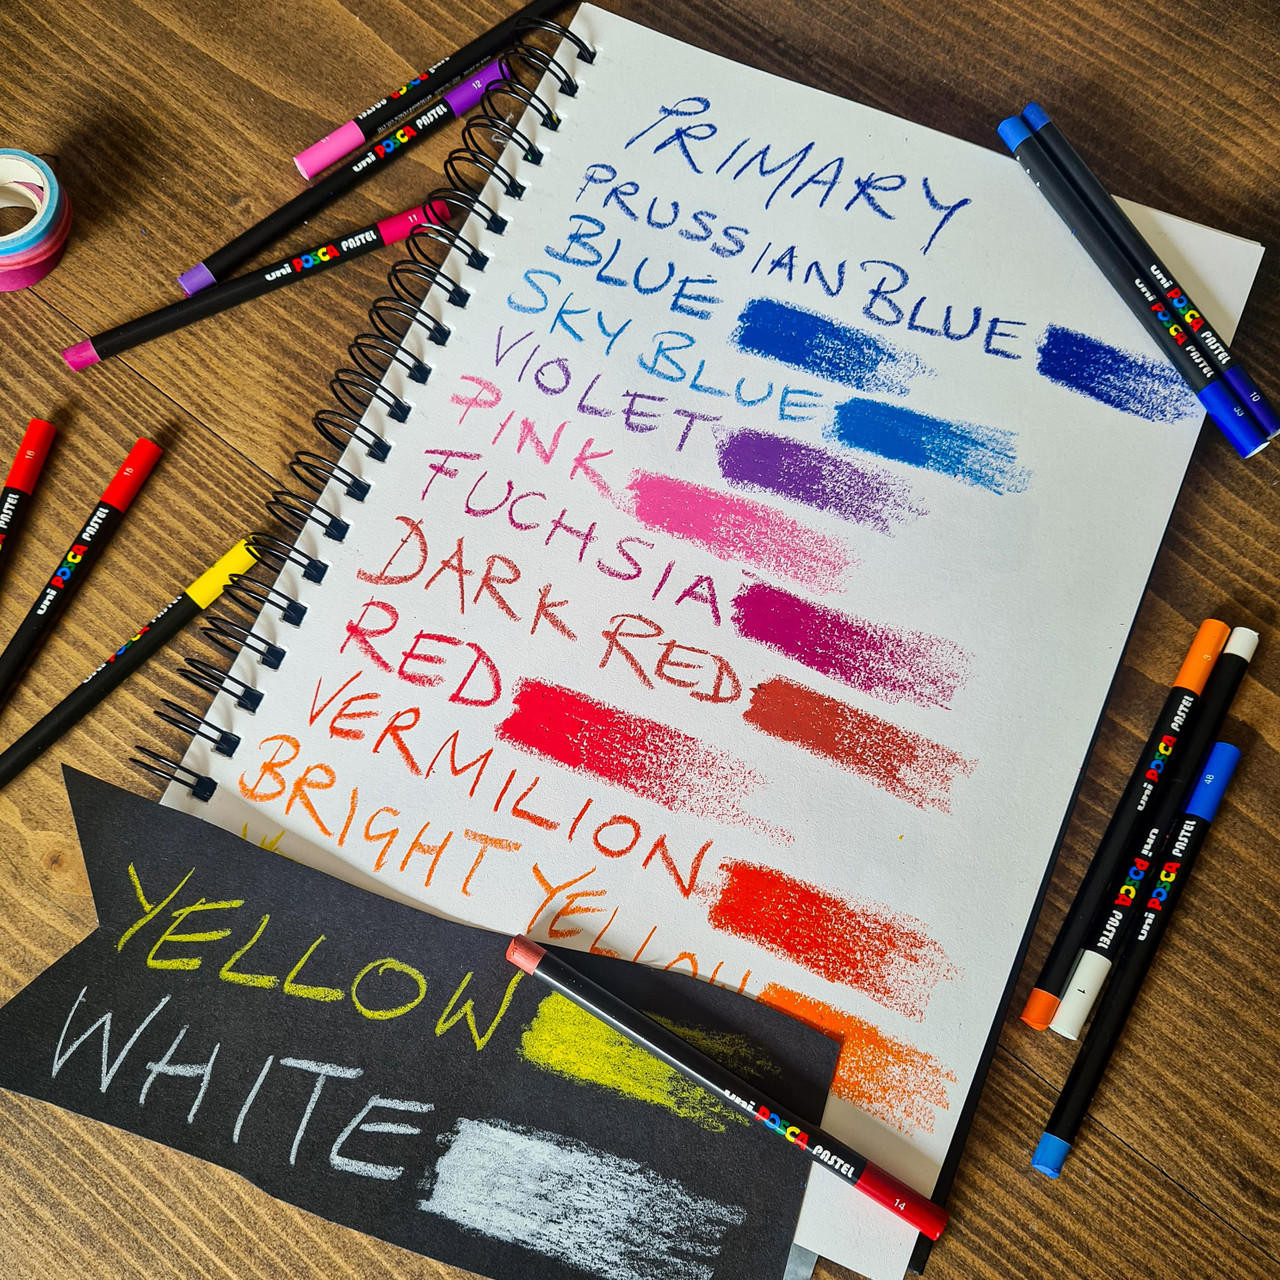 PRIMARY
PRUSSIAN BLUE
BLUE
SKY BLUE
VIOLET
PINK
FUCHSIA
DARK RED
RED
VERMILION
BRIGHT YELLOW
YELLOW
WHITE
POSCA
12
uni POSCA PASTEL
11
uni POSCA PASTEL
16
PASTEL
15
uni POSCA PASTEL
POSCA PASTEL
uni POSCA PASTEL
10
uni POSCA PASTEL
33
3
uni POSCA PASTEL
uni POSCA PASTEL
1
48
uni POSCA PASTEL
uni POSCA PASTEL
14